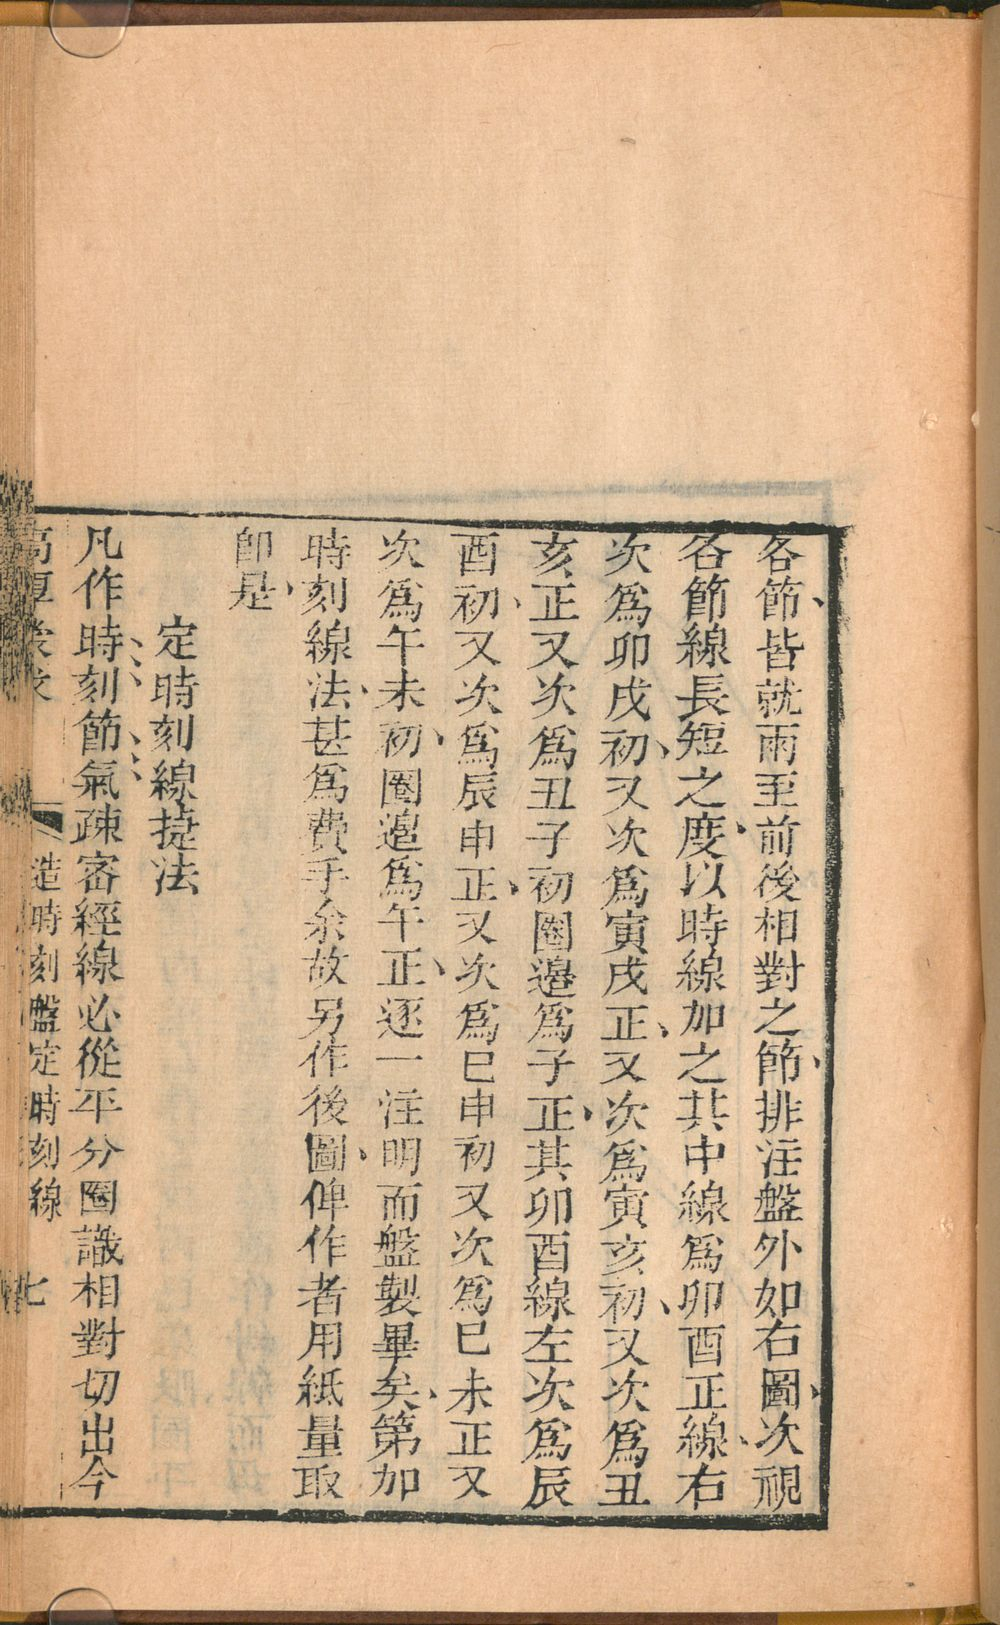 各節皆就兩至前後相對之節排注盤外如右圖次視
各節線長短之度以時線加之其中線爲卯酉正線右
次爲卯戌初又次爲寅戌正又次爲寅亥初又次爲丑
亥正又次爲丑子初圈邉爲子正其卯酉線左次爲辰
酉初又次爲辰申正又次爲巳申初又次爲巳未正又
次爲午未初圈邉爲午正逐一注明而盤製畢矣第加
時刻線法甚爲費手余故另作後圖俾作者用紙量取
卽是
定時刻線捷法
凡作時刻節氣疎密經線必從平分圈識相對切出今
高厚蒙求
造時刻盤定時刻線
七